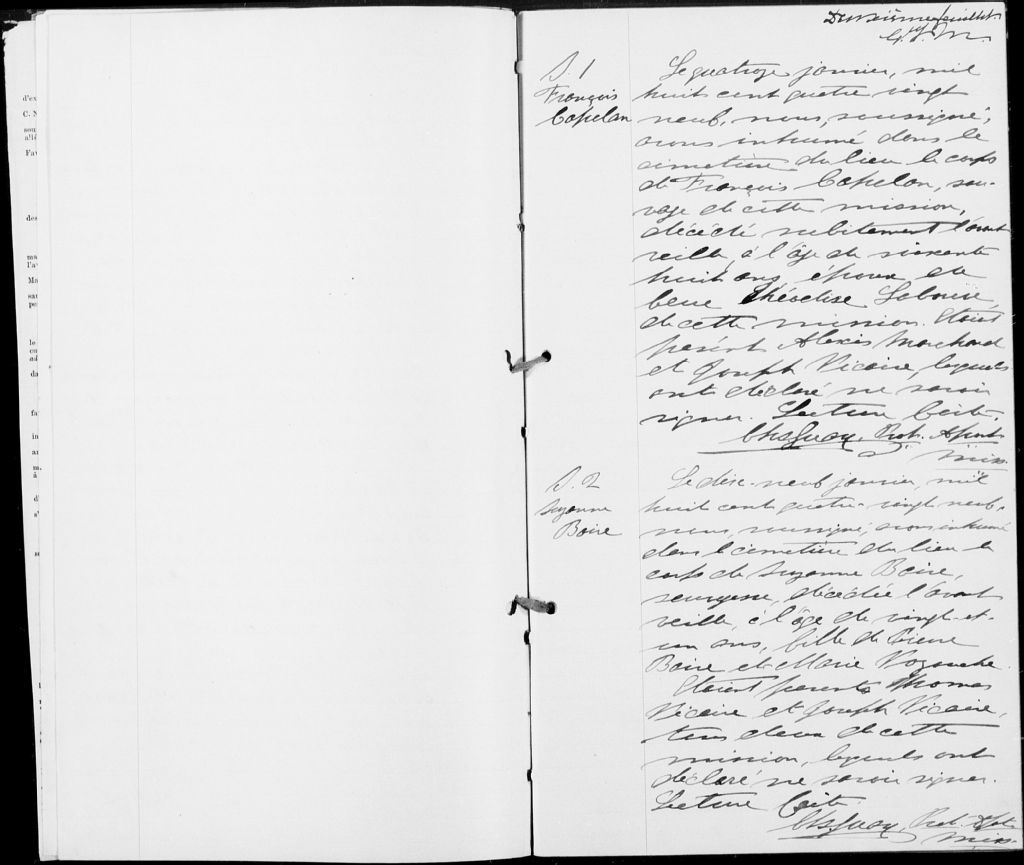 d'ex
C. N
sou
allé
Fav
des
ma
l'a
Ma
sau
pe
le
cu
ad
da
fa
in
au
m.
à
d
s'
Deuxième feuillet.
G. J. M.
S. 1
François
Copelan
Le quatorze janvier, mil
huit cent quatre vingt
neuf, nous, soussigné,
avons inhumé dans le
cimetière du lieu le corps
de François Copelan, sau-
vage de cette mission,
décédé subitement l'avant
veille, à l'âge de soixante
huit ans, époux de
feue Théotiste Labouïe,
de cette mission. Etaient
présents Alexis Marchand
et Joseph Vicaire, lesquels
ont déclaré ne savoir
signer. Lecture faite.
Chs Guay, Prot. Apost.
miss.
S. 2
Suzanne
Boire
Le dix-neuf janvier, mil
huit cent quatre-vingt neuf,
nous, soussigné, avons inhumé
dans le cimetière du lieu le
corps de Suzanne Boire,
sauvagesse, décédée l'avant
veille, à l'âge de vingt-et-
un ans, fille de Pierre
Boire et de Marie
Etaient présents Thomas
Vicaire et Joseph Vicaire,
tous deux de cette
mission, lesquels ont
déclaré ne savoir signer.
Lecture faite.
Chs Guay, Prot. Apt.
miss.